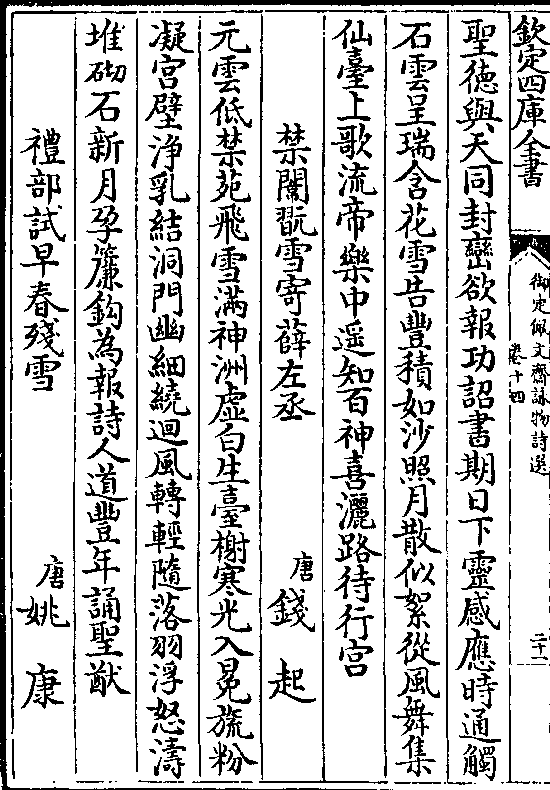 欽定四庫全書
御定佩文齋詠物詩選
卷十四
二十一
聖德與天同封巒欲報功詔書期日下靈感應時通觸
石雲呈瑞含花雪告豐積如沙照月散似絮從風舞集
仙臺上歌流帝樂中遥知百神喜灑路待行宫
禁闈翫雪寄薛左丞
唐 錢起
元雲低禁苑飛雪滿神洲虛白生臺榭寒光入冕旒粉
凝宫壁浄乳結洞門幽細繞迴風轉輕隨落羽浮怒濤
堆砌石新月孕簾鈎為報詩人道豐年誦聖猷
禮部試早春殘雪
唐 姚康